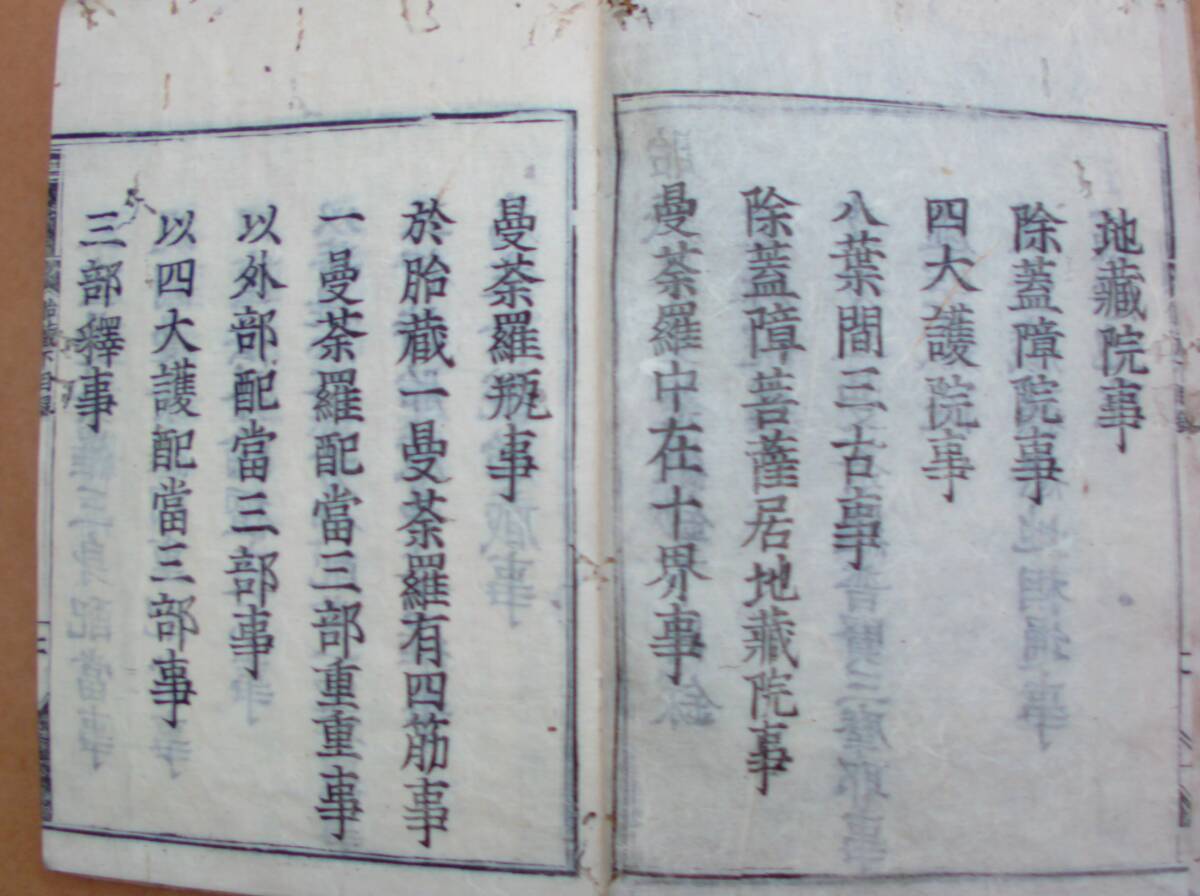 地藏院事
除蓋障院事
四大護院事
八葉間三古事
除蓋障菩薩居地藏院事
曼荼羅中在十界事
曼荼羅瓶事
於胎蔵一曼荼羅有四筋事
一曼荼羅配當三部重重事
以外部配當三部事
以四大護配當三部事
三部釋事